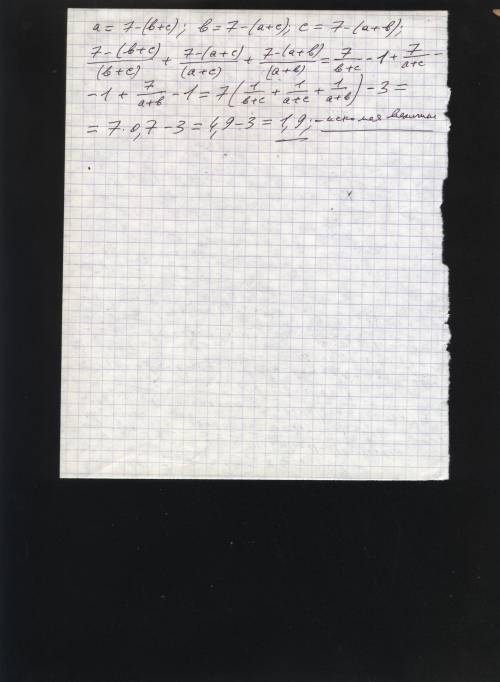 a = 7-(b+c); b = 7-(a+c); c = 7-(a+b);
7-(b+c)/(b+c) + 7-(a+c)/(a+c) + 7-(a+b)/(a+b) = 7/b+c -1+ 7/a+c -
-1 + 7/a+b -1 = 7(1/b+c + 1/a+c + 1/a+b) -3 =
= 7·0,7-3 = 4,9-3 = 1,9; - искомая величина